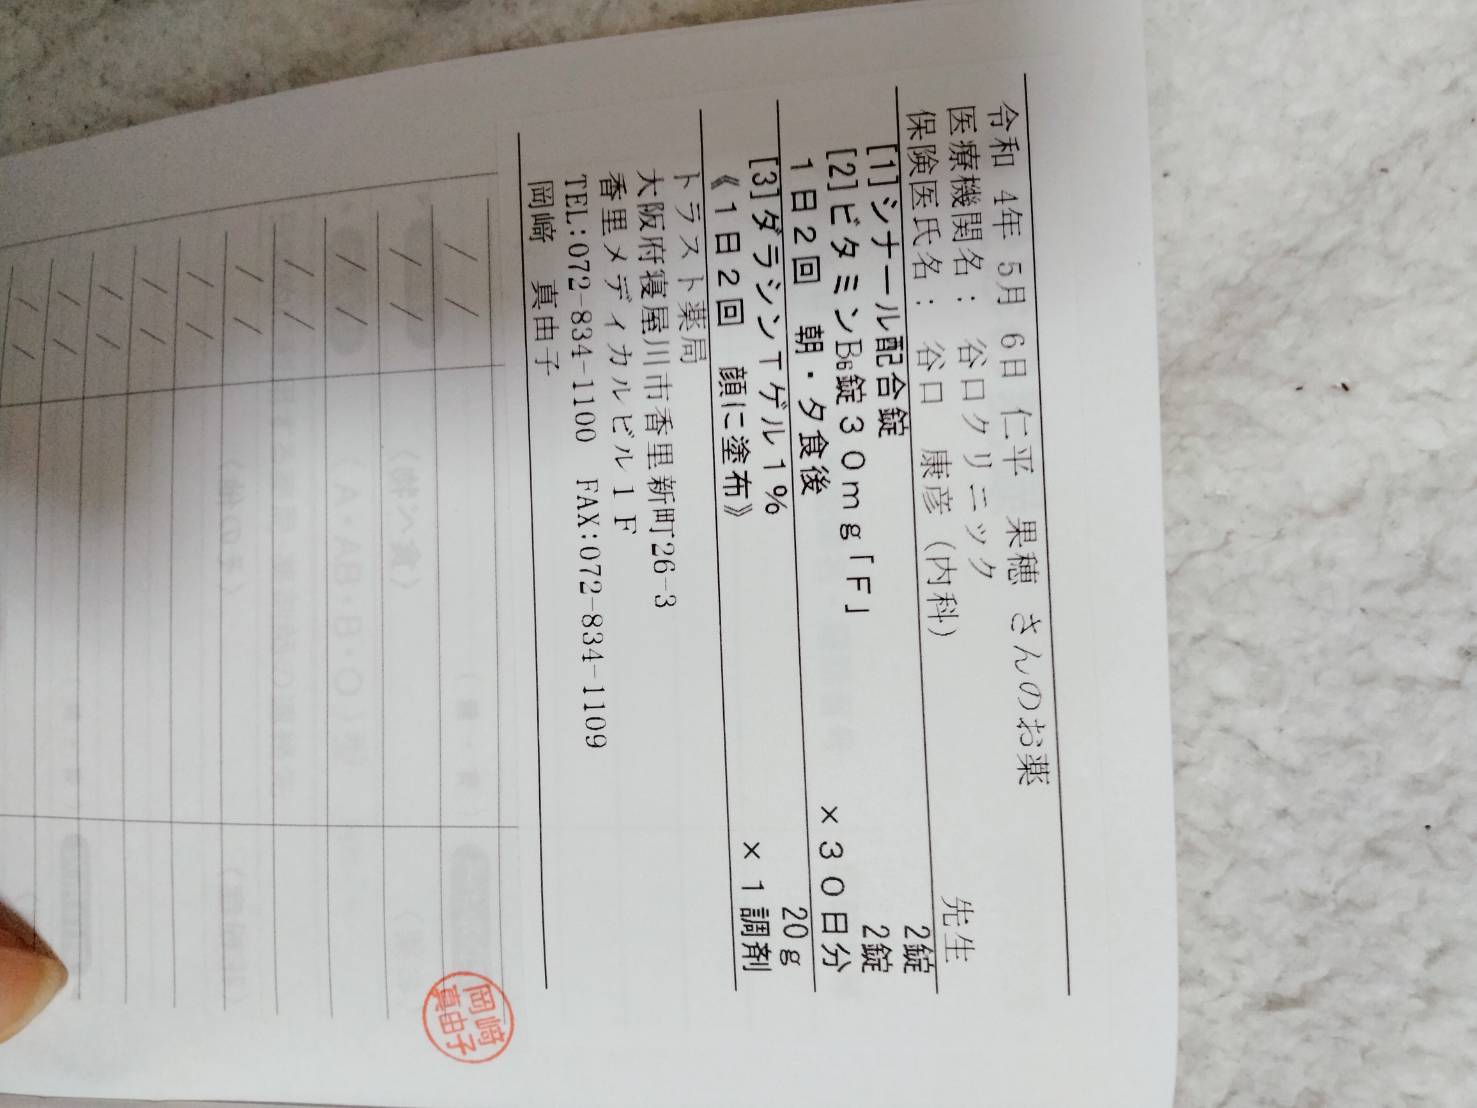 令和 4年 5月 6日 仁平 果穂 さんのお薬
医療機関名： 谷口クリニック
保険医氏名： 谷口 康彦（内科） 先生
[1]シナール配合錠 2錠
[2]ビタミンB₆錠３０ｍｇ「Ｆ」 2錠
１日２回 朝・夕食後 ×３０日分
[3]ダラシンＴゲル１％ 20g
《１日２回 顔に塗布》 ×１調剤
トラスト薬局
大阪府寝屋川市香里新町26-3
香里メディカルビル１Ｆ
TEL:072-834-1100 FAX:072-834-1109
岡﨑 真由子
岡﨑
真由子